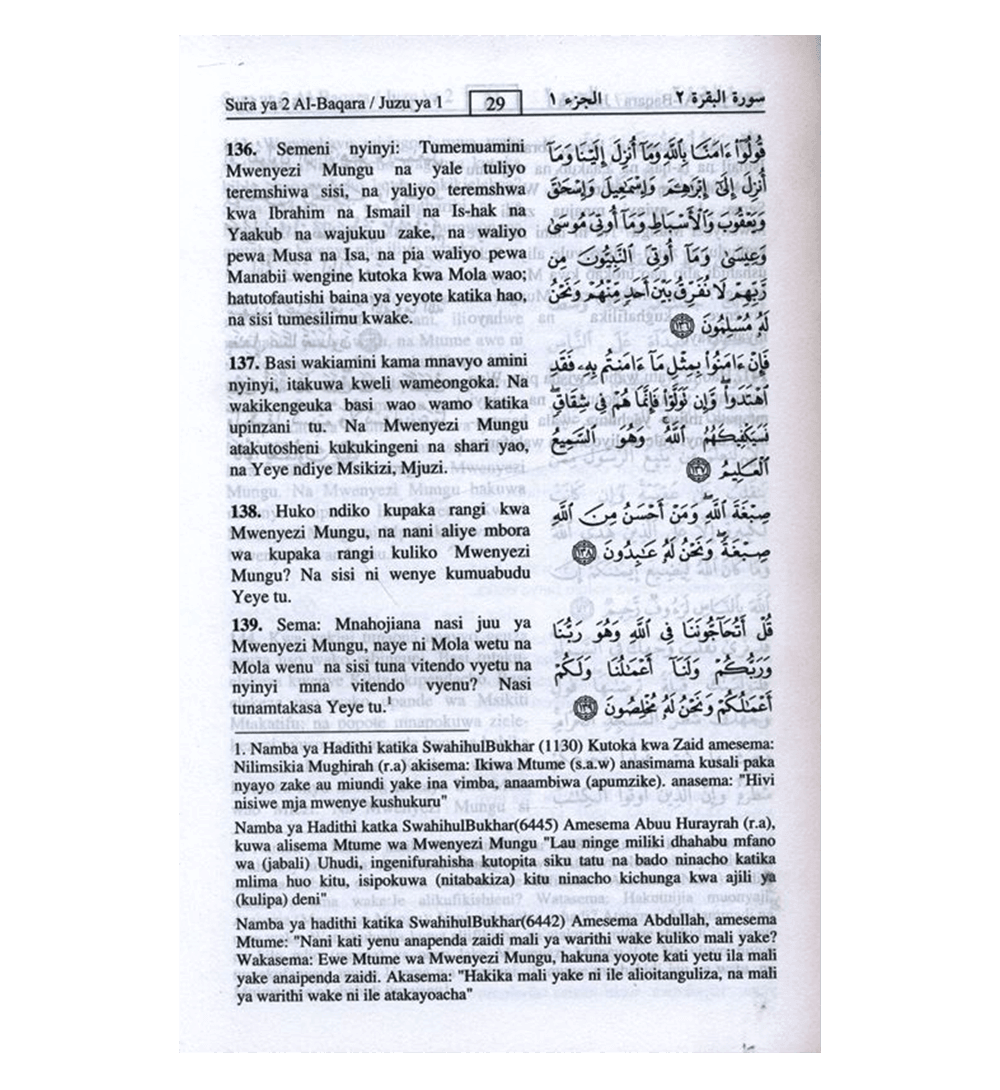 Sura ya 2 Al-Baqara / Juzu ya 1
29
الجزء ١
سورة البقرة ٢
136. Semeni nyinyi: Tumemuamini
Mwenyezi Mungu na yale tuliyo
teremshiwa sisi, na yaliyo teremshwa
kwa Ibrahim na Ismail na Is-hak na
Yaakub na wajukuu zake, na waliyo
pewa Musa na Isa, na pia waliyo pewa
Manabii wengine kutoka kwa Mola wao;
hatutofautishi baina ya yeyote katika hao,
na sisi tumesilimu kwake.
قُولُوٓا۟ ءَامَنَّا بِٱللَّهِ وَمَآ أُنزِلَ إِلَيْنَا وَمَآ
أُنزِلَ إِلَىٰٓ إِبْرَٰهِـۧمَ وَإِسْمَٰعِيلَ وَإِسْحَٰقَ
وَيَعْقُوبَ وَٱلْأَسْبَاطِ وَمَآ أُوتِىَ مُوسَىٰ
وَعِيسَىٰ وَمَآ أُوتِىَ ٱلنَّبِيُّونَ مِن
رَّبِّهِمْ لَا نُفَرِّقُ بَيْنَ أَحَدٍ مِّنْهُمْ وَنَحْنُ
لَهُۥ مُسْلِمُونَ ١٣٦
137. Basi wakiamini kama mnavyo amini
nyinyi, itakuwa kweli wameongoka. Na
wakikengeuka basi wao wamo katika
upinzani tu. Na Mwenyezi Mungu
atakutosheni kukukingeni na shari yao,
na Yeye ndiye Msikizi, Mjuzi.
فَإِنْ ءَامَنُوا۟ بِمِثْلِ مَآ ءَامَنتُم بِهِۦ فَقَدِ
ٱهْتَدَوا۟ۖ وَّإِن تَوَلَّوْا۟ فَإِنَّمَا هُمْ فِى شِقَاقٍۖ
فَسَيَكْفِيكَهُمُ ٱللَّهُۚ وَهُوَ ٱلسَّمِيعُ
ٱلْعَلِيمُ ١٣٧
138. Huko ndiko kupaka rangi kwa
Mwenyezi Mungu, na nani aliye mbora
wa kupaka rangi kuliko Mwenyezi
Mungu? Na sisi ni wenye kumuabudu
Yeye tu.
صِبْغَةَ ٱللَّهِۖ وَمَنْ أَحْسَنُ مِنَ ٱللَّهِ
صِبْغَةًۖ وَنَحْنُ لَهُۥ عَٰبِدُونَ ١٣٨
139. Sema: Mnahojiana nasi juu ya
Mwenyezi Mungu, naye ni Mola wetu na
Mola wenu na sisi tuna vitendo vyetu na
nyinyi mna vitendo vyenu? Nasi
tunamtakasa Yeye tu.1
قُلْ أَتُحَآجُّونَنَا فِى ٱللَّهِ وَهُوَ رَبُّنَا
وَرَبُّكُمْ وَلَنَآ أَعْمَٰلُنَا وَلَكُمْ
أَعْمَٰلُكُمْ وَنَحْنُ لَهُۥ مُخْلِصُونَ ١٣٩
1. Namba ya Hadithi katika SwahihulBukhar (1130) Kutoka kwa Zaid amesema:
Nilimsikia Mughirah (r.a) akisema: Ikiwa Mtume (s.a.w) anasimama kusali paka
nyayo zake au miundi yake ina vimba, anaambiwa (apumzike). anasema: "Hivi
nisiwe mja mwenye kushukuru"
Namba ya Hadithi katka SwahihulBukhar(6445) Amesema Abuu Hurayrah (r.a),
kuwa alisema Mtume wa Mwenyezi Mungu "Lau ninge miliki dhahabu mfano
wa (jabali) Uhudi, ingenifurahisha kutopita siku tatu na bado ninacho katika
mlima huo kitu, isipokuwa (nitabakiza) kitu ninacho kichunga kwa ajili ya
(kulipa) deni"
Namba ya hadithi katika SwahihulBukhar(6442) Amesema Abdullah, amesema
Mtume: "Nani kati yenu anapenda zaidi mali ya warithi wake kuliko mali yake?
Wakasema: Ewe Mtume wa Mwenyezi Mungu, hakuna yoyote kati yetu ila mali
yake anaipenda zaidi. Akasema: "Hakika mali yake ni ile alioitanguliza, na mali
ya warithi wake ni ile atakayoacha"